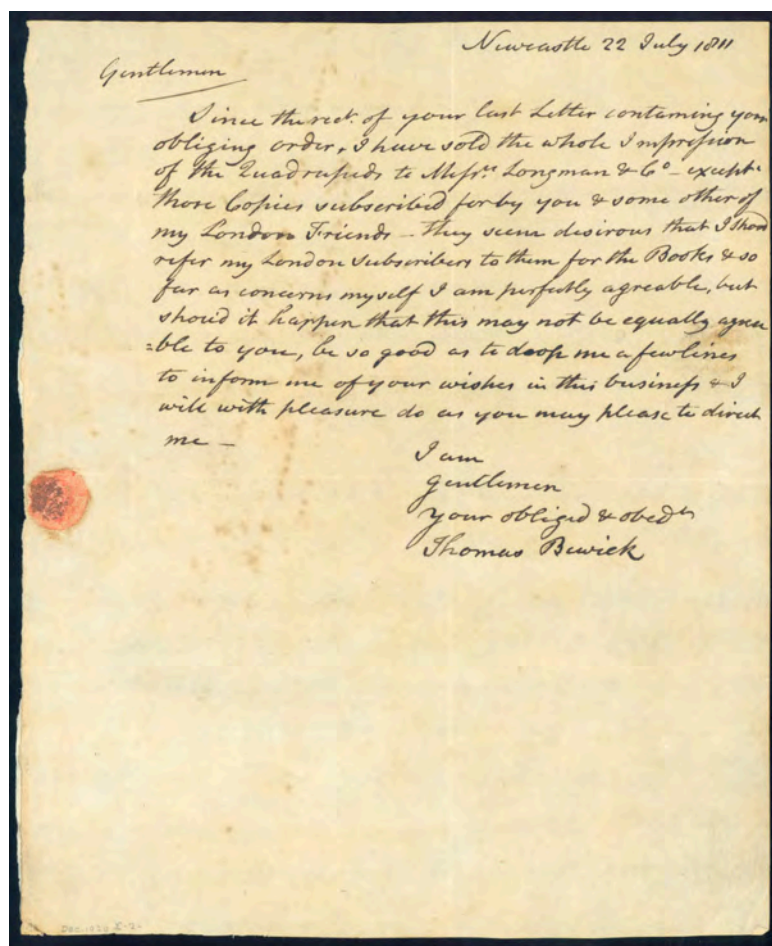 Newcastle 22 July 1811
Gentlemen
Since the rect. of your last Letter containing your
obliging order, I have sold the whole Impression
of the Quadrupeds to Messrs. Longman & Co – except
those Copies subscribed for by you & some other of
my London Friends – they seem desirous that I shoud
refer my London subscribers to them for the Books & so
far as concerns myself I am perfectly agreable, but
shoud it happen that this may not be equally agrea
=ble to you, be so good as to drop me a few lines
to inform me of your wishes in this business & I
will with pleasure do as you may please to direct
me –
I am
Gentlemen
your obliged & obedt
Thomas Bewick